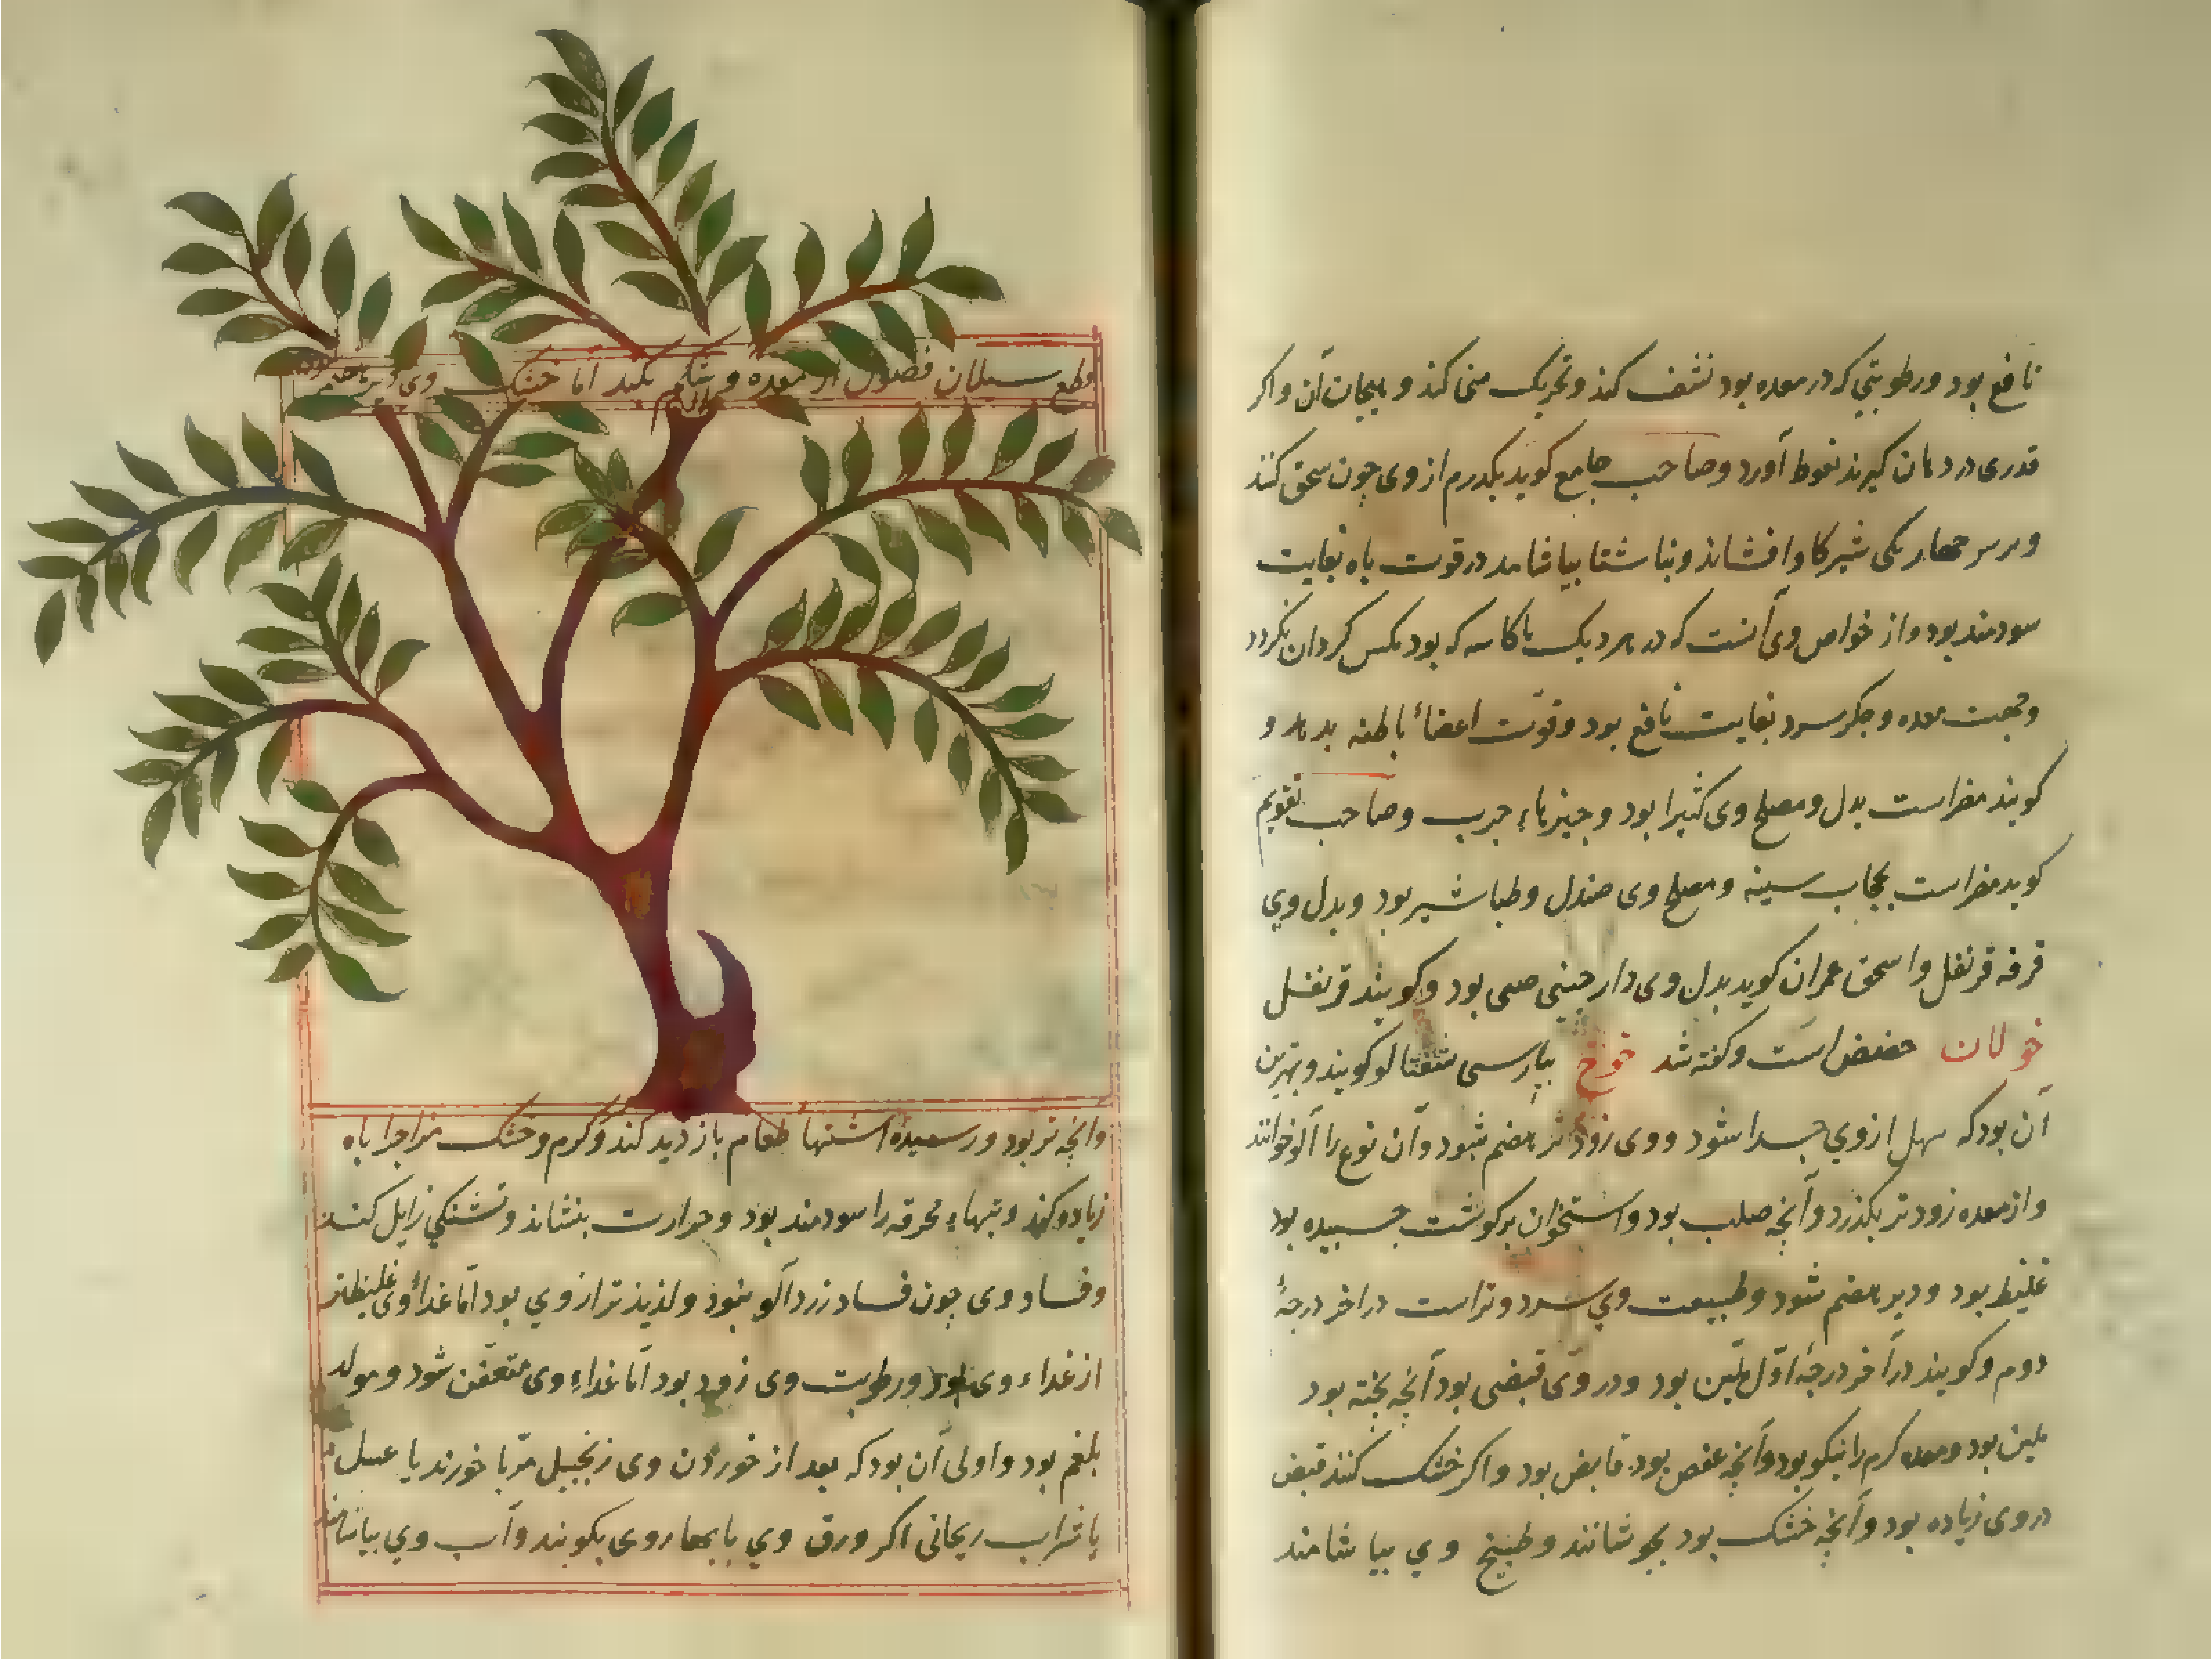 نافع بود ورطوبتی که در معده بود نشف کند و تحریک منی کند و هیجان آن و اکر
قدری در دهان کیرند نعوظ آورد وصاحب جامع کوید یکدرم از وی چون سحق کنند
وبر سر جهاریکی شیر کاو افشانند و بناشتا بیاشامند در قوت باه بغایت
سودمند بود و از خواص وی آنست که در هر دیک یا کاسه که بود مکس کردان نکردد
وجهت معده و جکر سرد بغایت نافع بود و قوّت اعضاءٔ باطنه بدهد و
کویند مضر است بدل و مصلح وی کثیرا بود و چیزهاء چرب وصاحب تقویم
کوید مضر است بحجاب سینه و مصلح وی صندل و طباشیر بود و بدل وی
قرفه قرنفل و اسحق عمران کوید بدل وی دارچینی بود و کویند قرنفل
خولان حضض است و کفته شد خوخ بپارسی شفتالو کویند و بهترین
آن بود که سهل از وی جدا شود و وی زودتر هضم شود و آن نوع را آلو خوانند
و از معده زودتر بکذرد و آنچه صلب بود و استخوان بر کوشت جسبیده بود
غلیظ بود و دیر هضم شود و طبیعت وی سرد و تر است در اخر درجهٔ
دوم و کویند در آخر درجهٔ اوّل ملّین بود و در وی قبضی بود آنچه پخته بود
ملین بود و معده کرم را نیکو بود و آنچه عفص بود قابض بود و اکر خشک کنند قبض
در وی زیاده بود و آنچه خشک بود بجوشانند و طبیخ وی بیاشامند
قطع سیلان فضول از معده و شکم بکند امّا خشک وی
وانچه تر بود و رسیده اشتهاءٔ طعام بازدید کند و کرم و خشک مزاج را باه
زیاده کند و تبهاء محرقه را سودمند بود و حرارت بنشاند و تشنکی زایل کند
وفساد وی چون فساد زردآلو بنود و لذیذتر از وی بود امّا غداءٔ وی غلیظتر
از غداء وی بود و رطوبت وی زود بود امّا غداء وی متعفّن شود و مولد
بلغم بود و اولی آن بود که بعد از خوردن وی زنجبیل مربّا خورند یا عسل
یا شراب ریحانی اکر ورق وی یا بهار وی بکوبند و آب وی بیاشامند